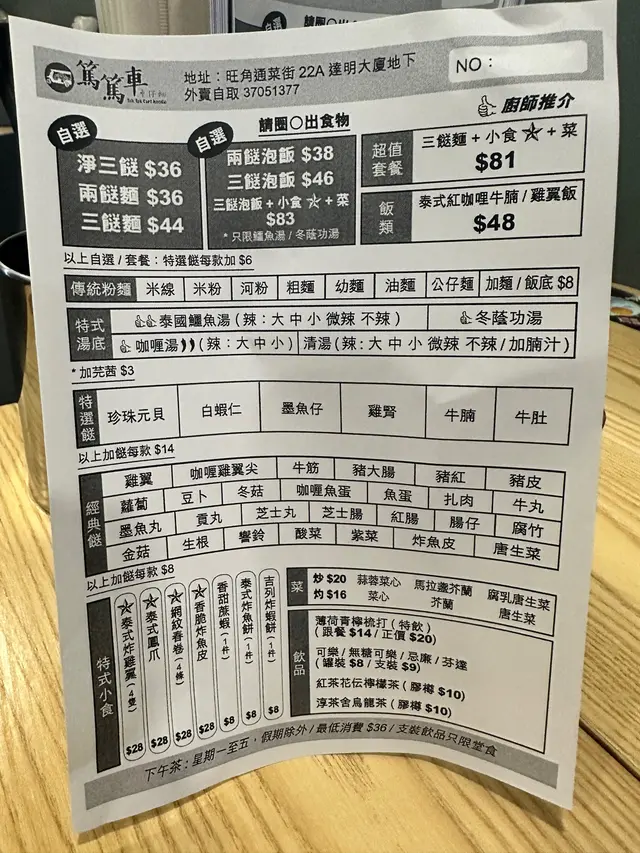 自選 請圈O出食
篤篤車 車仔麵
Tuk Tuk Cart Noodle
地址：旺角通菜街 22A 達明大廈地下
外賣自取 37051377
NO：
請圈〇出食物
廚師推介
自選
淨三餸 $36
兩餸麵 $36
三餸麵 $44
自選
兩餸泡飯 $38
三餸泡飯 $46
三餸泡飯 + 小食 ☆ + 菜
$83
* 只限鱷魚湯 / 冬蔭功湯
超值套餐
三餸麵 + 小食 ☆ + 菜
$81
飯類
泰式紅咖哩牛腩 / 雞翼飯
$48
以上自選 / 套餐：特選餸每款加 $6
傳統粉麵 米線 米粉 河粉 粗麵 幼麵 油麵 公仔麵 加麵 / 飯底 $8
特式湯底
泰國鱷魚湯 ( 辣：大 中 小 微辣 不辣 ) 冬蔭功湯
咖喱湯 ( 辣：大 中 小 ) 清湯 ( 辣：大 中 小 微辣 不辣 / 加腩汁 )
* 加芫茜 $3
特選餸 珍珠元貝 白蝦仁 墨魚仔 雞腎 牛腩 牛肚
以上加餸每款 $14
經典餸
雞翼 咖喱雞翼尖 牛筋 豬大腸 豬紅 豬皮
蘿蔔 豆卜 冬菇 咖喱魚蛋 魚蛋 扎肉 牛丸
墨魚丸 貢丸 芝士丸 芝士腸 紅腸 腸仔 腐竹
金菇 生根 響鈴 酸菜 紫菜 炸魚皮 唐生菜
以上加餸每款 $8
特式小食
☆泰式炸雞翼 (4隻) $28
☆泰式鳳爪 $28
☆網紋春卷 (4條) $28
☆香脆炸魚皮 $28
香甜蔗蝦 (1件) $8
泰式炸魚餅 (1件) $8
吉列炸蝦餅 (1件) $8
菜
炒 $20 蒜蓉菜心 馬拉盞芥蘭 腐乳唐生菜
灼 $16 菜心 芥蘭 唐生菜
飲品
薄荷青檸梳打 ( 特飲 )
( 跟餐 $14 / 正價 $20 )
可樂 / 無糖可樂 / 忌廉 / 芬達
( 罐裝 $8 / 支裝 $9 )
紅茶花伝檸檬茶 ( 膠樽 $10 )
淳茶舍烏龍茶 ( 膠樽 $10 )
下午茶：星期一至五，假期除外 / 最低消費 $36 / 支裝飲品只限堂食